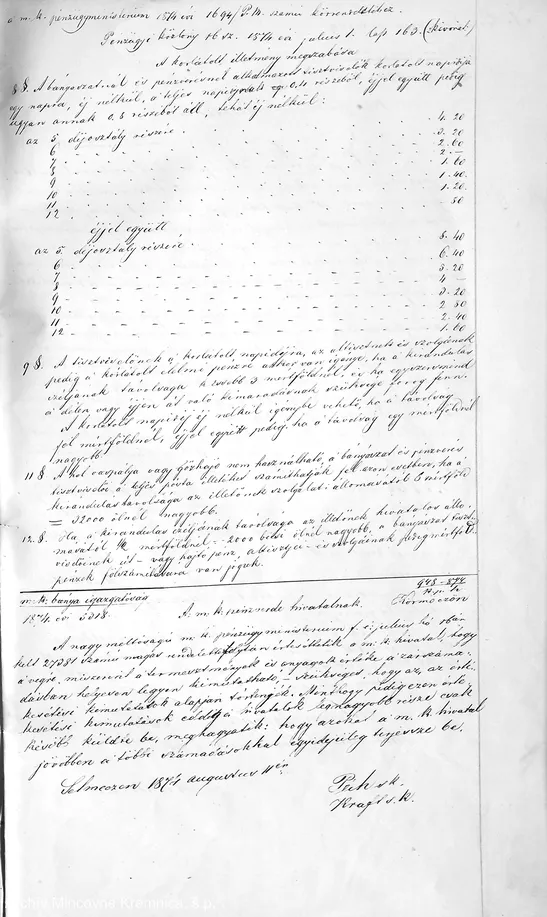 a m. k. pénzügyministerium 1874 évi 1694/P.M. számú körrendeletéhez.
Pénzügyi közlöny 16 sz. 1874 évi julius 1. lap 163. (kivonat)
A korlátolt illetmény megszabása
8 §. A bányászatnál és pénzverésnél alkalmazott tisztviselők korlátolt napidíja
egy napra, éj nélkül, a teljes napidíjnak egy 0,4 részéből, éjjel együtt pedig
ugyan annak 0,8 részéből áll, tehát éj nélkül:
az 5. díjosztály részére . 4. 20
6 3. 20
7 2. 60
8 2. —
9 1. 60
10 1. 40.
11 1. 20.
12 . 80
éjjel együtt
az 5. díjosztály részére . 8. 40
6 6. 40
7 5. 20
8 4 —
9 3. 20
10 2. 80
11 2. 40
12 1. 60
9 §. A tisztviselőnek a korlátolt napidíjra, az altisztnek és szolgának
pedig a korlátolt élelmi pénzre akkor van igénye, ha a kirándulás
czéljának távolsága kisebb 3 mértföldnél, és ha egyszersmind
a délen vagy éjjen át való kimaradásnak szüksége forog fenn.
A korlátolt napidíj éj nélkül igénybe vehető, ha a távolság
fél mértföldnél, éjjel együtt pedig, ha a távolság egy mértföldnél
nagyobb.
11 § A hol vaspálya vagy gőzhajó nem használható, a bányászat és pénzverés
tisztviselői a teljes posta illetéket számíthatják fel azon esetben, ha a
kirándulás távolsága az illetőnek szolgálati állomásától 8 mértföld
= 32000 ölnél nagyobb.
12. §. Ha, a kirándulás czéljának távolsága az illetőnek hivatalos állo-
másától ½ mértföldnél = 2000 bécsi ölnél nagyobb, a bányászat tiszt-
viselőinek út- vagy hajtó pénz, altisztjei- és szolgáinak pedig mértföld
pénzek fölszámítására van joguk.
m. k. bánya igazgatóság 943-874
1874. évi 5318. A m. k. pénzverde hivatalnak. Körmöczön
A nagy méltóságú m. k. pénzügyministerium f. é. julius hó 16án
kelt 27981 számú magas rendelete folytán értesíttetik a m. k. hivatal, hogy
a végre, miszerint a termesztmányok és anyagok értéke a zárszáma-
dásban helyesen legyen kimutatható, – szükséges, hogy az, az érté-
kesítési kimutatások alapján történjék. Minthogy pedig ezen érté-
kesítési kimutatások eddigi a hivatalok legnagyobb része csak
később küldte be, meghagyatik: hogy azokat a m. k. hivatal
jövőben a többi számadásokkal egyidejűleg terjessze be.
Selmeczen 1874 augustus 11én
Péch s. k.
Kraft s. k.
Archív Mincovne Kremnica, š.p.